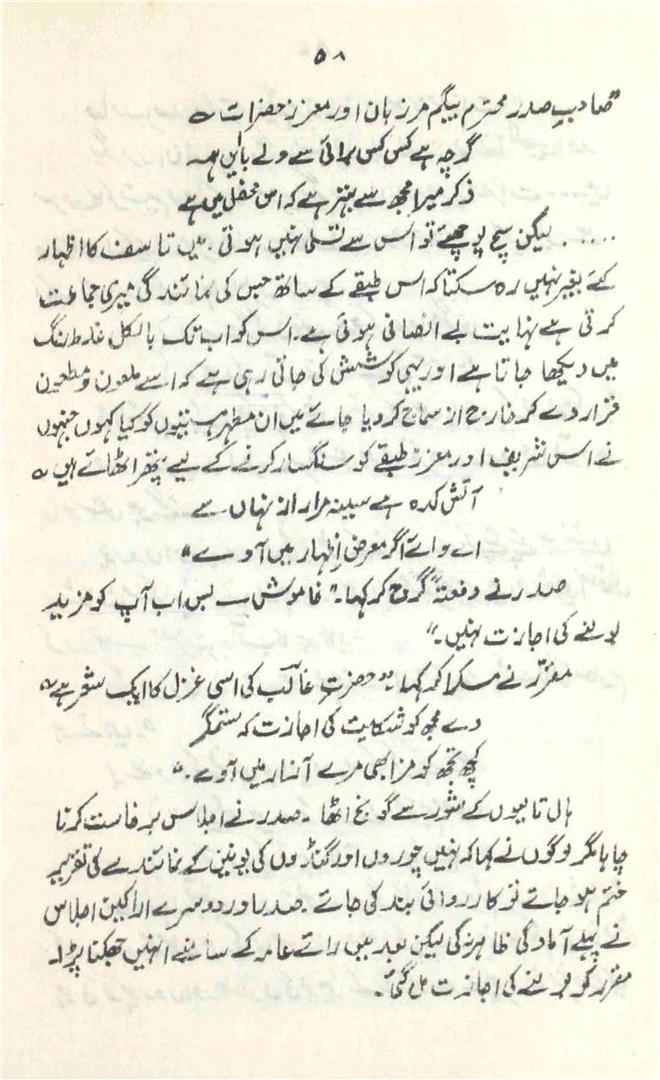 ۵۸
"صاحبِ صدر محترم بیگم مرزبان اور معزز حضرات ؎
گرچہ ہے کس کس برائی سے ولے بایں ہمہ
ذکر میرا مجھ سے بہتر ہے کہ اس محفل میں ہے
..... لیکن سچ پوچھئے تو اس سے تسلی نہیں ہوتی۔ میں تاسف کا اظہار
کئے بغیر نہیں رہ سکتا کہ اس طبقے کے ساتھ جس کی نمائندگی میری جماعت
کرتی ہے نہایت بے انصافی ہوئی ہے۔ اس کو اب تک بالکل غلط رنگ
میں دیکھا جاتا ہے اور یہی کوشش کی جاتی رہی ہے کہ اسے ملعون و مطعون
قرار دے کر خارج از سماج کر دیا جائے میں ان مطہر ہستیوں کو کیا کہوں جنہوں
نے اس شریف اور معزز طبقے کو سنگسار کرنے کے لیے پتھر اٹھائے ہیں ؎
آتش کدہ ہے سینہ مرا رازِ نہاں سے
اے وائے اگر معرضِ اظہار میں آوے"
صدر نے دفعتہً گرج کر کہا۔ "خاموش ــ بس اب آپ کو مزید
بولنے کی اجازت نہیں۔"
مقرر نے مسکرا کر کہا۔ "حضرت غالبؔ کی اسی غزل کا ایک شعر ہے ؎
دے مجھ کو شکایت کی اجازت کہ ستمگر
کچھ تجھ کو مزا بھی مرے آزار میں آوے۔"
ہال تالیوں کے شور سے گونج اٹھا۔ صدر نے اجلاس برخاست کرنا
چاہا مگر لوگوں نے کہا کہ نہیں چوروں اور گنڈوں کی یونین کے نمائندے کی تقریر
ختم ہو جائے تو کارروائی بند کی جائے۔ صدر اور دوسرے اراکین اجلاس
نے پہلے آمادگی ظاہر نہ کی لیکن بعد میں رائے عامہ کے سامنے انہیں جھکنا پڑا۔
مقرر کو بولنے کی اجازت مل گئی۔